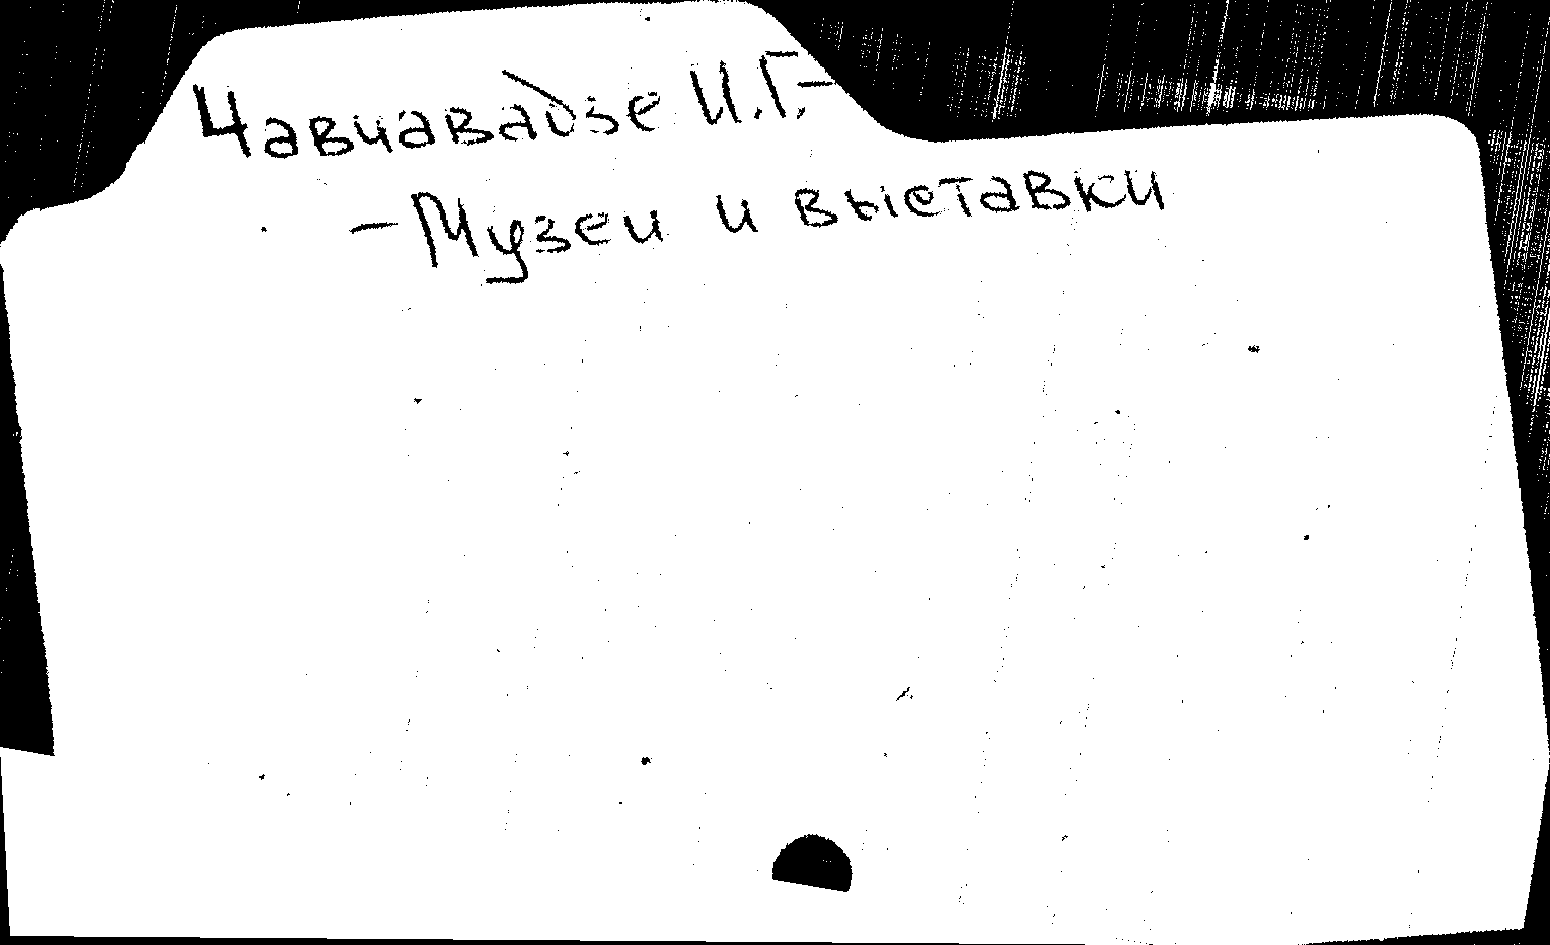 Чавчавадзе И.Г.-
- Музеи и выставки